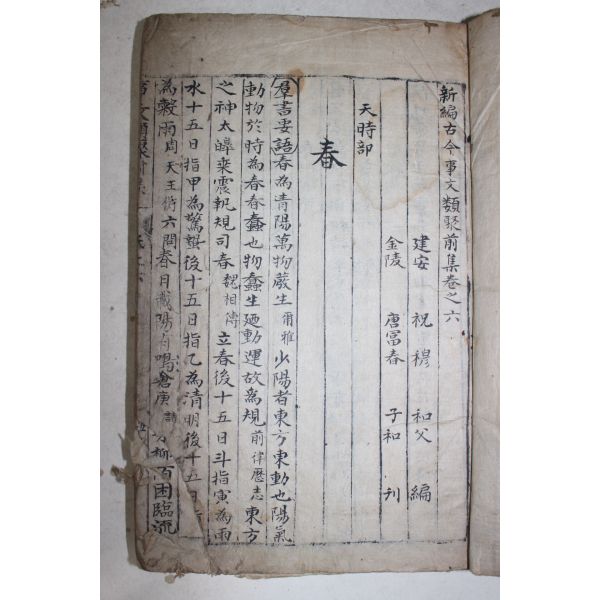 新編古今事文類聚前集卷之六
建安 祝穆 和父 編
金陵 唐冨春 子和 刋
天時部
春
羣書要語春為青陽萬物發生爾雅少陽者東方東動也陽氣
動物於時為春春蠢也物蠢生廼動運故為規前律歷志東方
之神太皥乘震執規司春魏相傳立春後十五日斗指寅為雨
水十五日指甲為驚蟄後十五日指乙為清明後十五日指
為糓雨周天王衡六間春日載陽有鳴倉庚詩柳百囷臨流